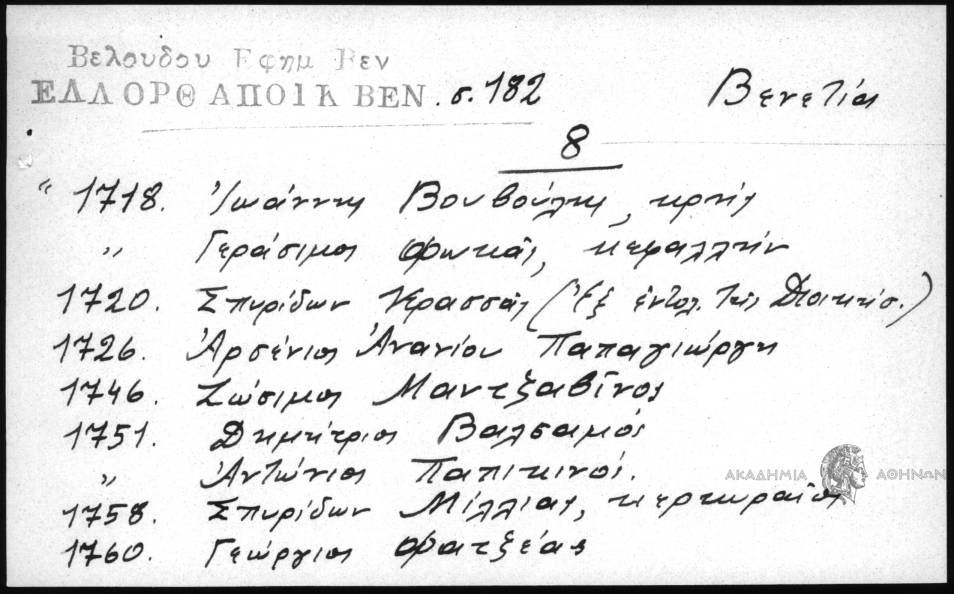 Βελουδου Εφημ Βεν
ΕΛΛ ΟΡΘ ΑΠΟΙΚ ΒΕΝ. σ. 182 Βενετία
8
" 1718. Ἰωάννης Βουβούλης, κρής
" Γεράσιμος Φωκᾶς, κεφαλλήν
1720. Σπυρίδων Κρασσᾶς (Ἐξ ἐντολ. τῆς Διοικήσ.)
1726. Ἀρσένιος Ἀνανίου Παπαγιώργη
1746. Ζώσιμος Μαντζαβῖνος
1751. Δημήτριος Βαλσαμός
" Ἀντώνιος Παπικινός.
1758. Σπυρίδων Μίλλιας, κερκυραῖος
1760. Γεώργιος Φατζέας
ΑΚΑΔΗΜΙΑ ΑΘΗΝΩΝ